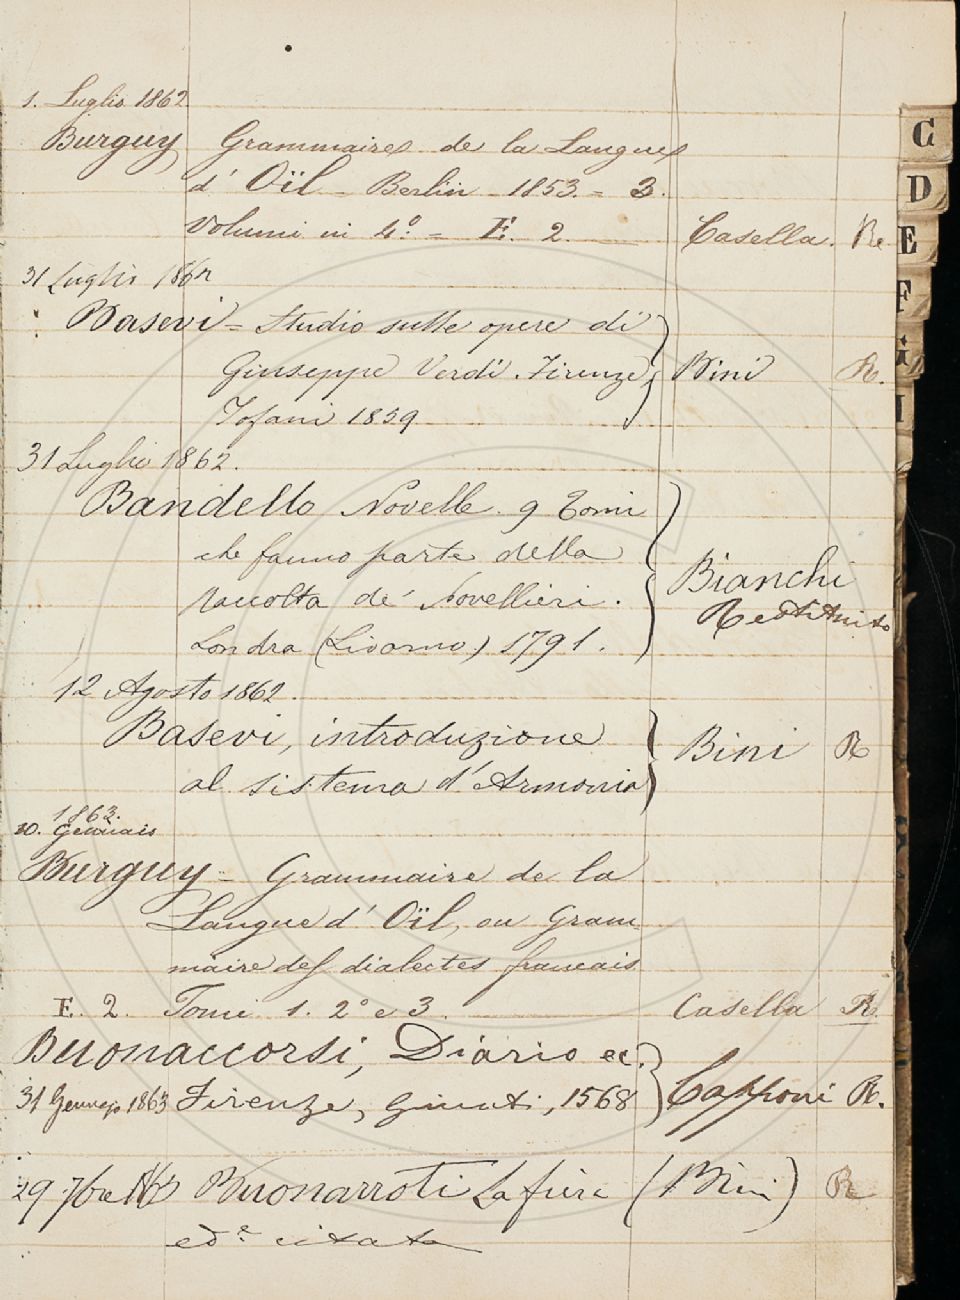 1. Luglio 1862
Burguy Grammaires de la Langues
d' Oïl - Berlin - 1853. - 3.
Volumi in 4.° - E. 2. Casella. Re
31 Luglio 1862
Basevi - Studio sulle opere di
Giuseppe Verdi. Firenze, Bini R.
Tofani 1859
31 Luglio 1862.
Bandello Novelle. 9 Tomi
che fanno parte della
raccolta de' Novellieri.
Londra (Livorno) 1791.
Bianchi
Restituito
12 Agosto 1862.
Basevi, introduzione
al sistema d'Armonia
Bini R
1863.
20. Gennaio
Burguy - Grammaire de la
Langue d' Oïl, ou Gram
maire des dialectes francais
E. 2. Tomi 1. 2° e 3. Casella R
Buonaccorsi, Diario ec.
31 Gennajo 1863 Firenze, Giunti, 1568 Capponi R.
29 7bre 1863 Buonarroti La fiera (Bini) Re
ed.e citata
C
D
E
F
G
I